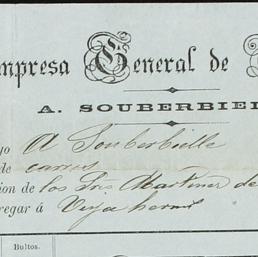 mpresa General de
A. SOUBERBIEL
yo A Souberbielle
de carros
ion de los Sres Martinez de
regar á Veja herm
Bultos.